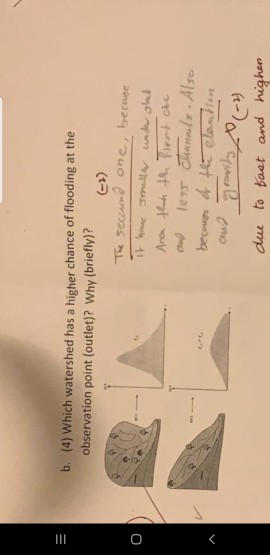 b. (4) Which watershed has a higher chance of flooding at the
observation point (outlet)? Why (briefly)?
(-2)
The seccund one, because
it have smaller water shed
Area then the first one
and less channels. Also
because of the elevation
and gravity (-2)
due to fast and higher